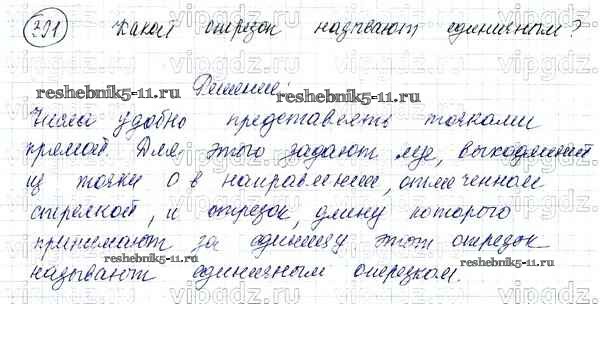 701 Какой отрезок называют единичным?
Решение:
Числа удобно представлять точками
прямой. Для этого задают луч, выходящий
из точки О в направлении, отмеченном
стрелкой, и отрезок, длину которого
принимают за единицу этот отрезок
называют единичным отрезком.
reshebnik5-11.ru
reshebnik5-11.ru
reshebnik5-11.ru
reshebnik5-11.ru
vipgdz.ru